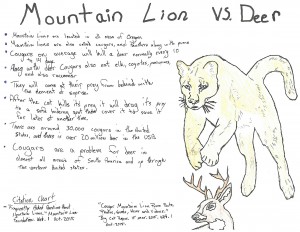 Mountain Lion vs. Deer
• Mountain Lions are located in all areas of Oregon
• Mountain lions are also called cougars, and panthers along with puma
• Cougars on average will kill a deer normally every 10 to 14 days
• Along with deer Cougars also eat elk, coyotes, and raccoons
• They will come at their prey from behind with the element of surprise
• After the cat kills its prey it will bring it's prey to a safe hidering spot and cover it to save it for later at another time.
• There are around 30,000 cougars in the United States, and there is over 20 million deer in the USA
• Cougars are a problem for deer in almost all areas of South America and up through the western United States.
Citation Chart
"Frequently Asked Questions About Mountain Lions." Mountain Lion Foundation. Web. 1 Oct. 2015.
"Cougar Mountain Lion Puma Facts
Big Cat Rescue.
Oct. 2015.